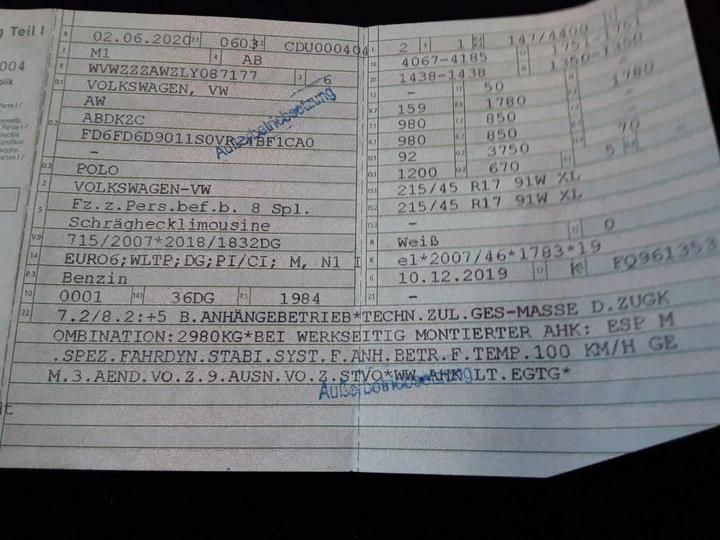 g Teil I
004
02.06.2020 0603 CDU000404
M1 AB
WVWZZZAWZLY087177 6
VOLKSWAGEN, VW
AW
ABDKZC
–
POLO
VOLKSWAGEN-VW
Fz.z.Pers.bef.b. 8 Spl.
Schräghecklimousine
715/2007*2018/1832DG
EURO6;WLTP;DG;PI/CI; M, N1 I
Benzin
0001 36DG 1984
Außerbetriebsetzung
2 1 147/4400
4067-4185 1751-1751
1438-1438 1350-1450
– 50 1780
159 1780
980 850
980 850
92 3750 70
1200 670 5
215/45 R17 91W XL
215/45 R17 91W XL
–
Weiß 0
e1*2007/46*1783*19
10.12.2019 K FQ961353
–
22 7.2/8.2:+5 B.ANHÄNGEBETRIEB*TECHN.ZUL.GES-MASSE D.ZUGK
OMBINATION:2980KG*BEI WERKSEITIG MONTIERTER AHK: ESP M
.SPEZ.FAHRDYN.STABI.SYST.F.ANH.BETR.F.TEMP.100 KM/H GE
M.3.AEND.VO.Z.9.AUSN.VO.Z.STVO*WW.AHK LT.EGTG*
Außerbetriebsetzung